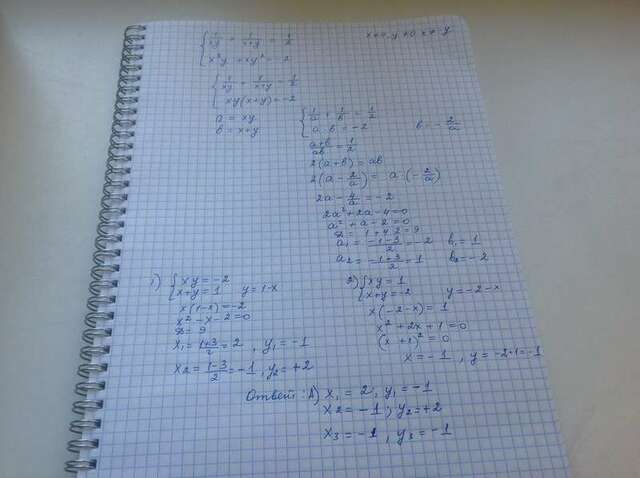 1/xy + 1/x+y = 1/2
x≠0 y≠0 x≠-y
x²y + xy² = -2
1/xy + 1/x+y = 1/2
xy(x+y) = -2
a = xy
b = x+y
1/a + 1/b = 1/2
a·b = -2
b = -2/a
a+b/ab = 1/2
2(a+b) = ab
2(a - 2/a) = a·(-2/a)
2a - 4/a = -2
2a² + 2a - 4 = 0
a² + a - 2 = 0
D = 1+4·2 = 9
a₁ = -1-3/2 = -2 b₁ = 1
a₂ = -1+3/2 = 1 b₂ = -2
1) xy = -2
x+y = 1 y = 1-x
x(1-x) = -2
x² - x - 2 = 0
D = 9
x₁ = 1+3/2 = 2, y₁ = -1
x2 = 1-3/2 = -1, y₂ = +2
2) xy = 1
x+y = -2 y = -2-x
x(-2-x) = 1
x² + 2x + 1 = 0
(x + 1)² = 0
x = -1, y = -2+1 = -1
Ответ: x₁ = 2, y₁ = -1
x2 = -1, y₂ = +2
x₃ = -1, y₃ = -1